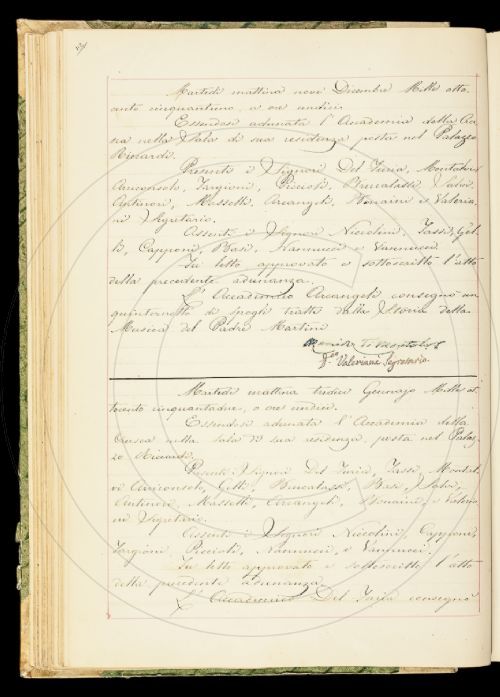 Martedì mattina nove Dicembre Mille otto-
cento cinquantuno, a ore undici.
Essendosi adunata l'Accademia della Cru-
sca nella Sala di sua residenza posta nel Palazzo
Riccardi.
Presenti i Signori Del Furia, Montalvi
Arciconsolo, Targioni, Piccioli, Brucalassi, Salvi,
Antinori, Masselli, Arcangeli, Bonaini e Valeria-
ni Segretario.
Assenti i Signori Niccolini, Tassi, Gel-
li, Capponi, Basi, Nannucci e Vannucci.
Fu letto approvato e sottoscritto l'atto
della precedente adunanza.
L'Accademico Arcangeli consegnò un
quinternetto di spogli tratti dalla Storia della
Musica del Padre Martini
Valeriani Segretario.
Martedì mattina tredici Gennajo Mille ot-
tocento cinquantadue, a ore undici.
Essendosi adunata l'Accademia della
Crusca nella Sala di sua residenza, posta nel Palaz-
zo Riccardi.
Presenti i Signori Del Furia, Tassi, Montal-
vi Arciconsolo, Gelli, Brucalassi, Basi, Salvi,
Antinori, Masselli, Arcangeli, Bonaini, e Valeria-
ni Segretario.
Assenti i Signori Niccolini, Capponi,
Targioni, Piccioli, Nannucci e Vannucci.
Fu letto approvato e sottoscritto l'atto
della precedente adunanza.
L'Accademico Del Furia consegnò